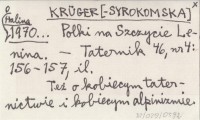 KRÜGER [-SYROKOMSKA]
Halina
1970... Polki na Szczycie Le-
nina. — Taternik 46, nr 4:
156-157, il.
Też o kobiecym tater-
nictwie i kobiecym alpinizmie.